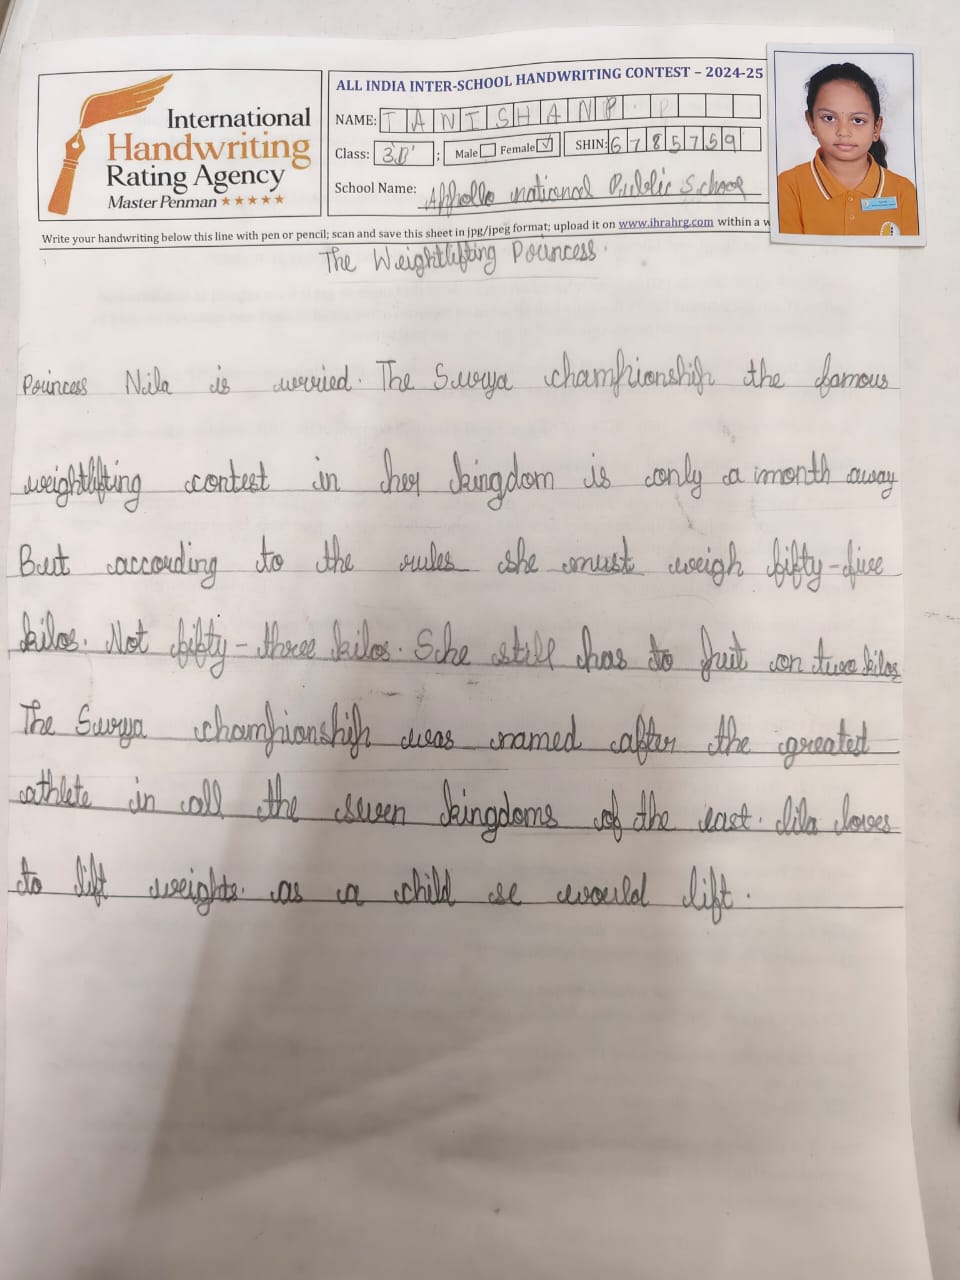 International
Handwriting
Rating Agency
Master Penman ★★★★★
ALL INDIA INTER-SCHOOL HANDWRITING CONTEST – 2024-25
NAME: TANISHA N P.
Class: 3.D' ; Male Female ✓ SHIN: 6785759
School Name: Appollo national Public School
Write your handwriting below this line with pen or pencil; scan and save this sheet in jpg/jpeg format; upload it on www.ihrahrg.com within a w
The Weightlifting Princess.
Princess Nila is worried. The Surya championship the famous
weightlifting contest in her kingdom is only a month away
But according to the rules she must weigh fifty-five
kilos. Not fifty-three kilos. She still has to put on two kilos
The Surya championship was named after the greatest
athlete in all the seven kingdoms of the east. lila loves
to lift weights. as a child se would lift.